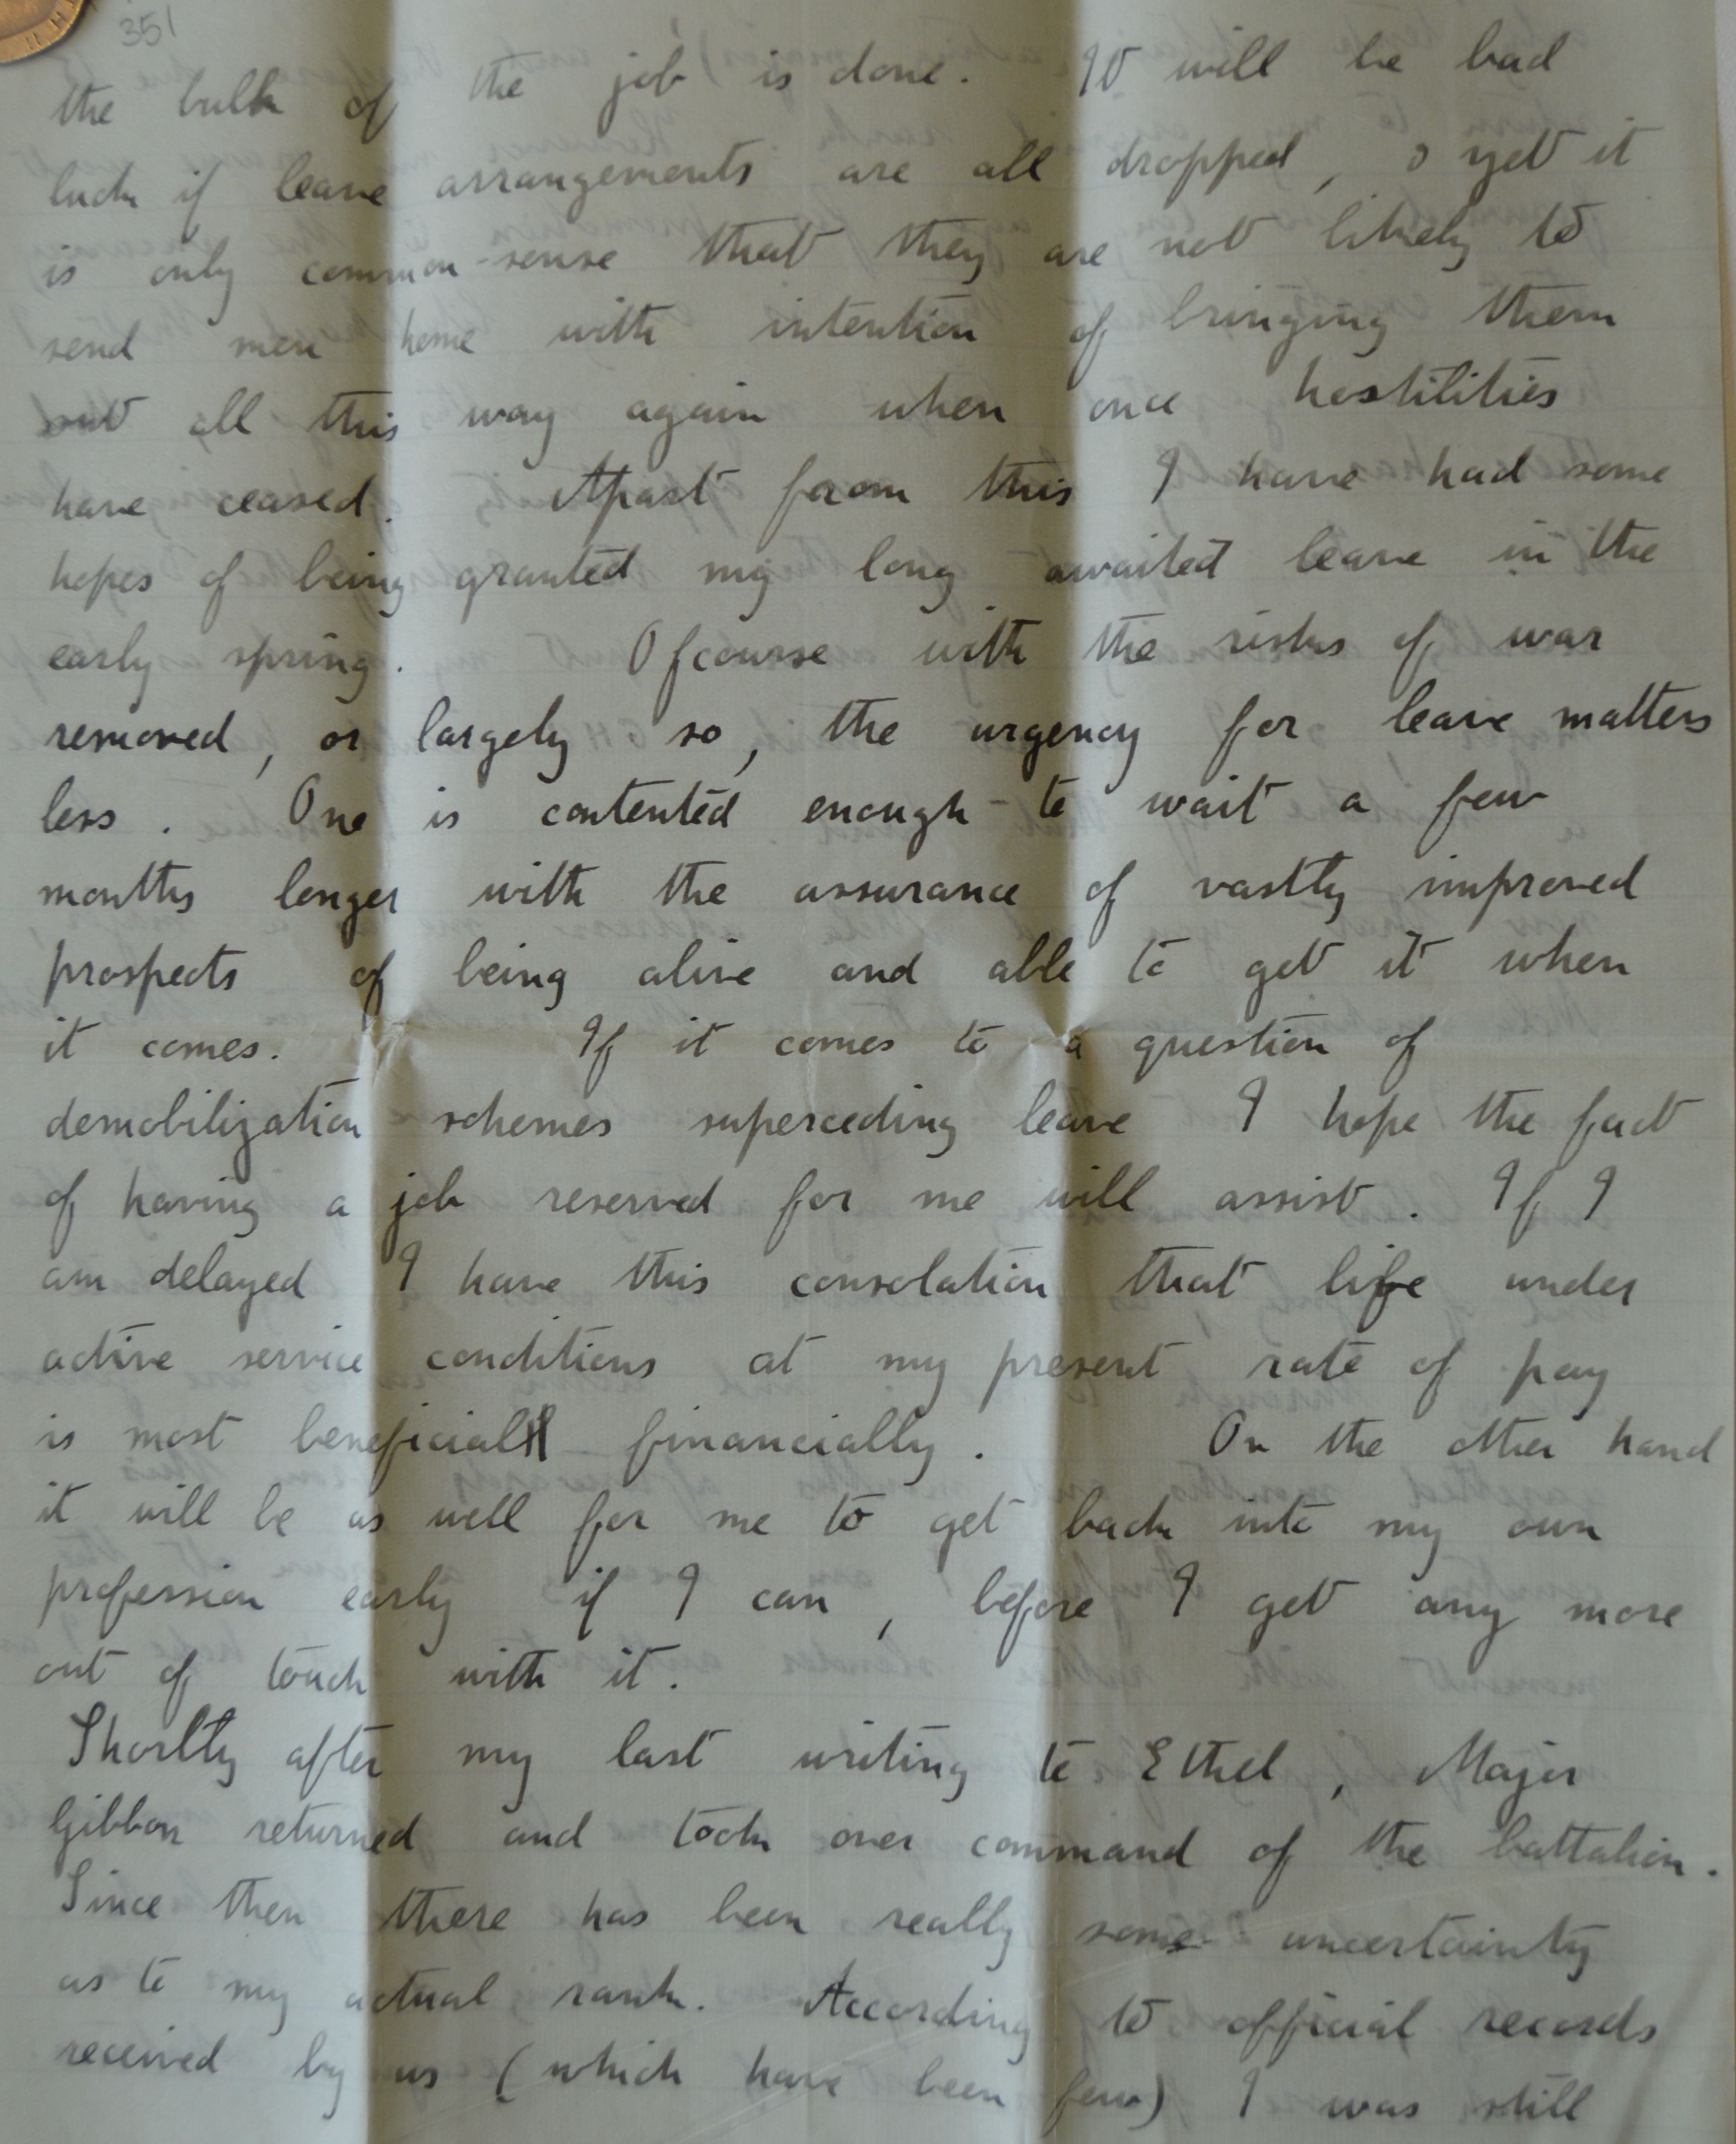 351
the bulk of the job is done. It will be bad
luck if leave arrangements are all dropped, & yet it
is only common-sense that they are not likely to
send men home with intention of bringing them
out all this way again when once hostilities
have ceased. Apart from this I have had some
hopes of being granted my long awaited leave in the
early spring. Ofcourse with the risks of war
removed, or largely so, the urgency for leave matters
less. One is contented enough to wait a few
months longer with the assurance of vastly improved
prospects of being alive and able to get it when
it comes. If it comes to a question of
demobilization schemes superceding leave I hope the fact
of having a job reserved for me will assist. If I
am delayed I have this consolation that life under
active service conditions at my present rate of pay
is most beneficial financially. On the other hand
it will be as well for me to get back into my own
profession early if I can, before I get any more
out of touch with it.
Shortly after my last writing to Ethel, Major
Gibbon returned and took over command of the battalion.
Since then there has been really some uncertainty
as to my actual rank. According to official records
received by us (which have been few) I was still